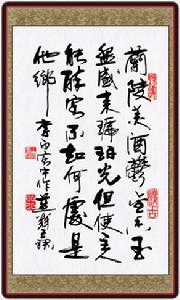 蘭陵美酒鬱金香玉
盌盛来琥珀光但使主人
能醉客不知何處是
他鄉 李白客中作